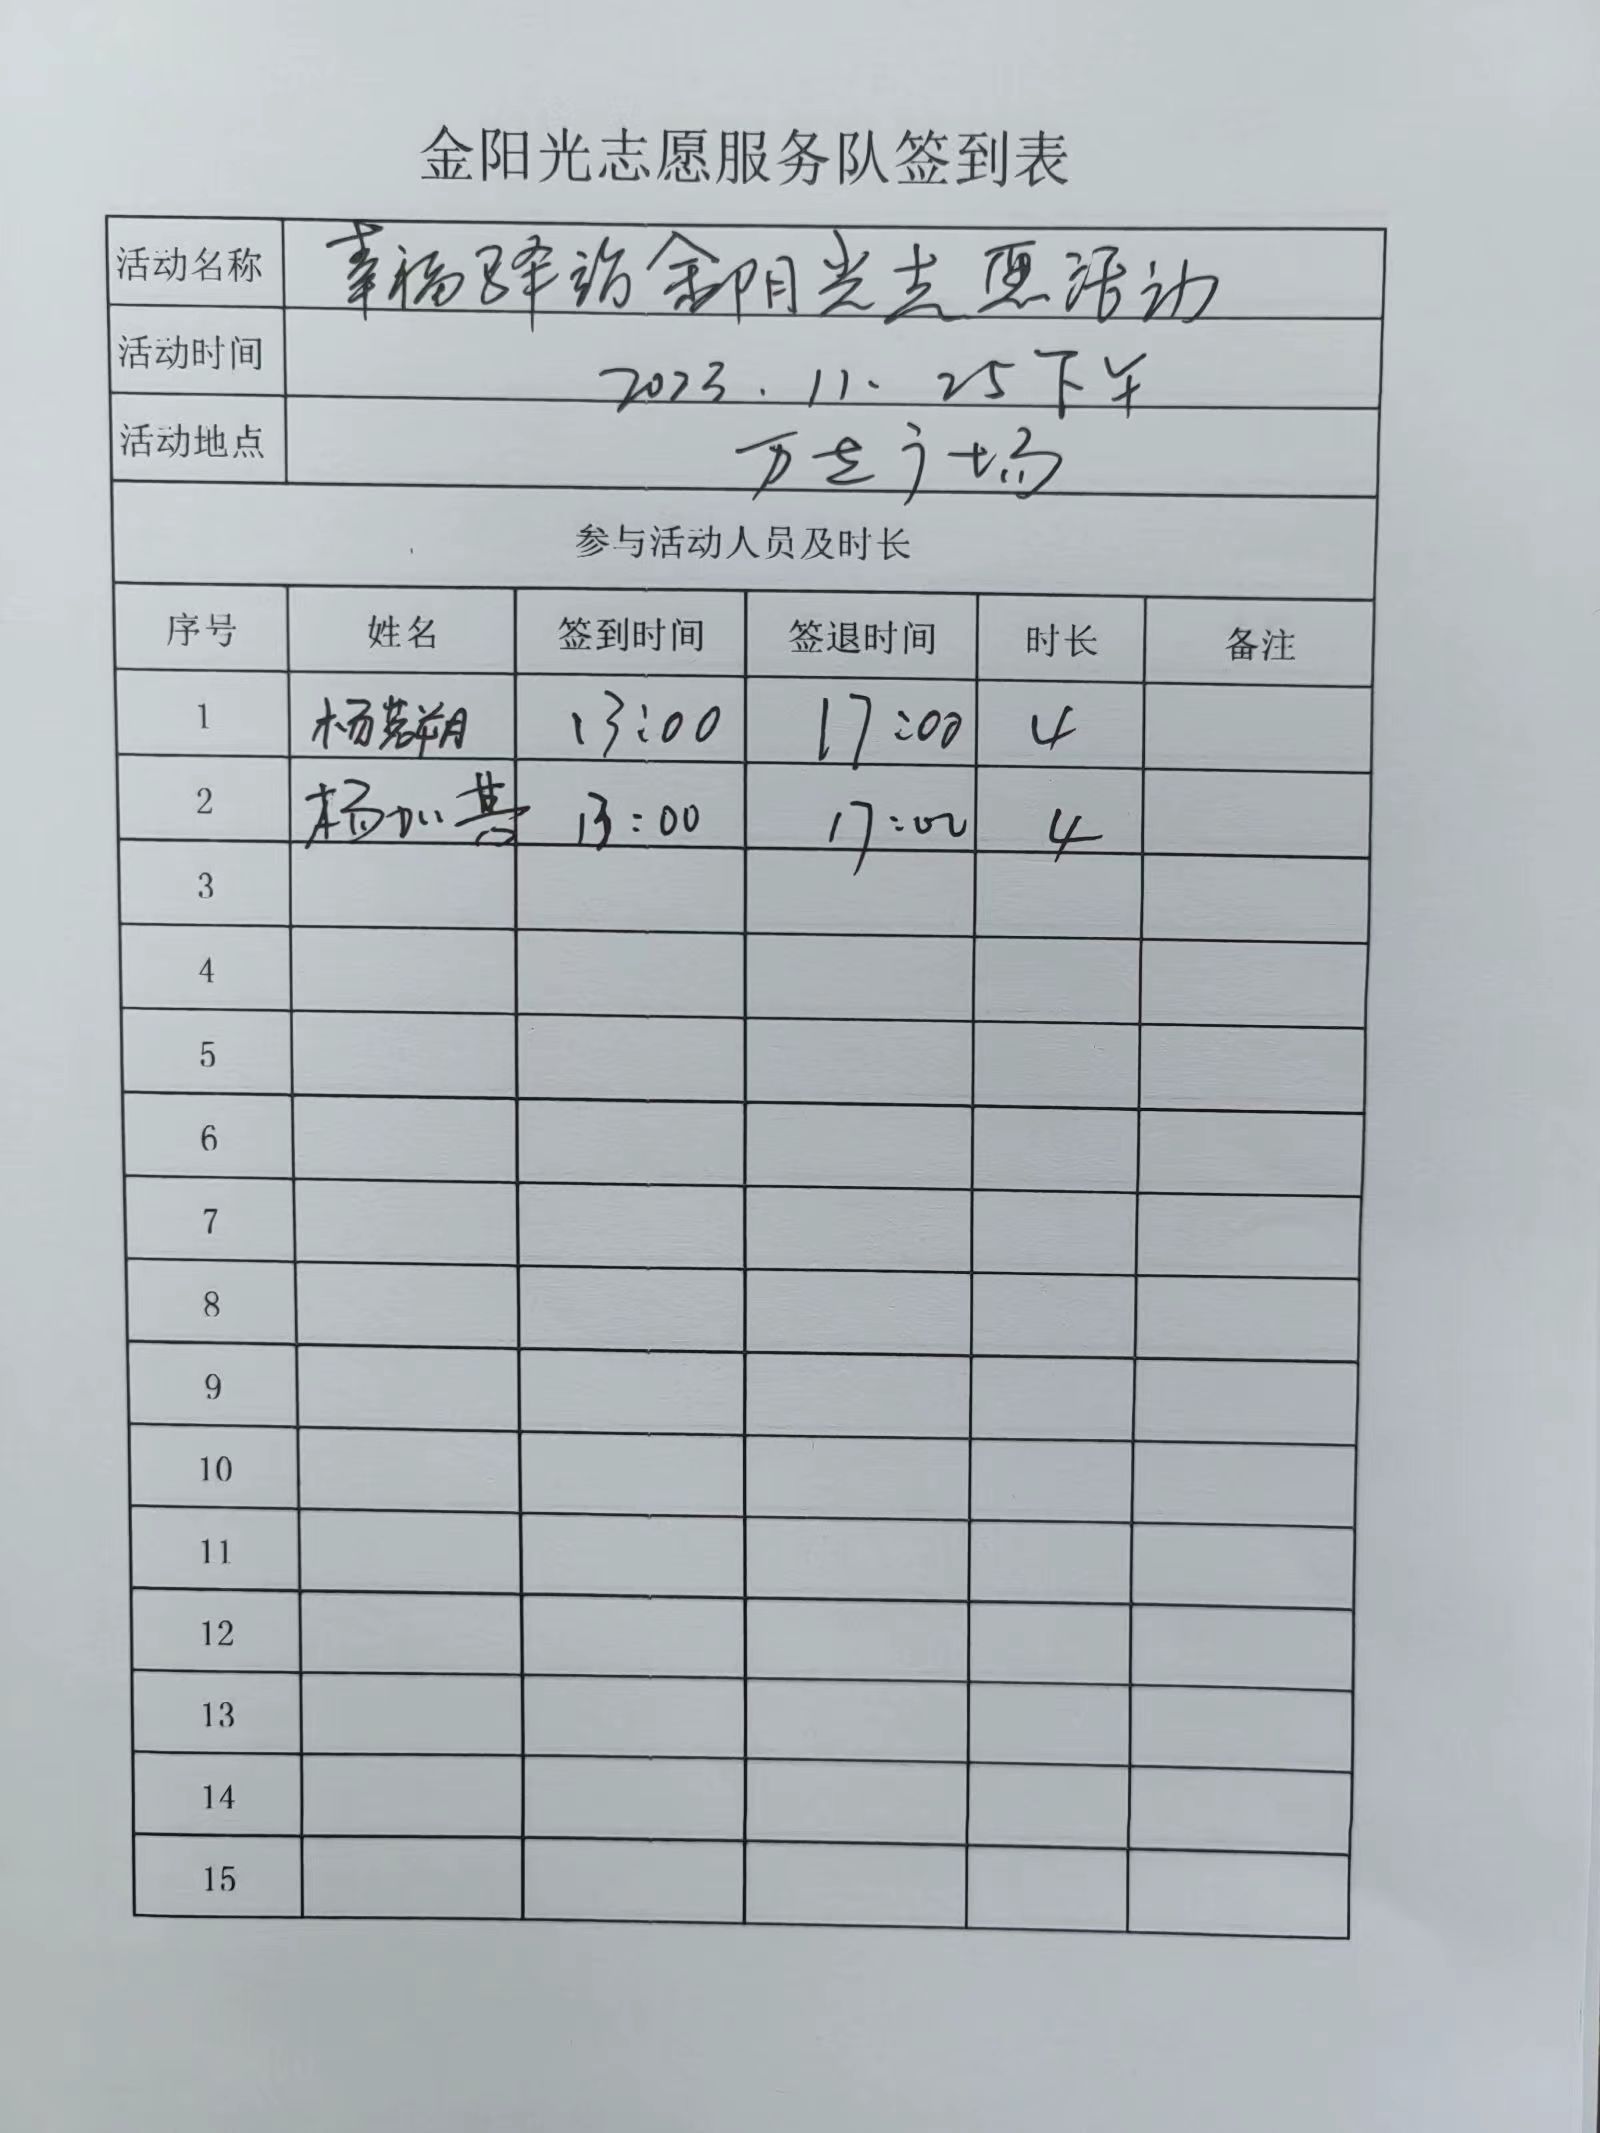 金阳光志愿服务队签到表
活动名称 幸福驿站金阳光志愿活动
活动时间 2023.11.25下午
活动地点 万达广场
参与活动人员及时长
序号 姓名 签到时间 签退时间 时长 备注
1 杨 13:00 17:00 4
2 杨 13:00 17:00 4
3
4
5
6
7
8
9
10
11
12
13
14
15